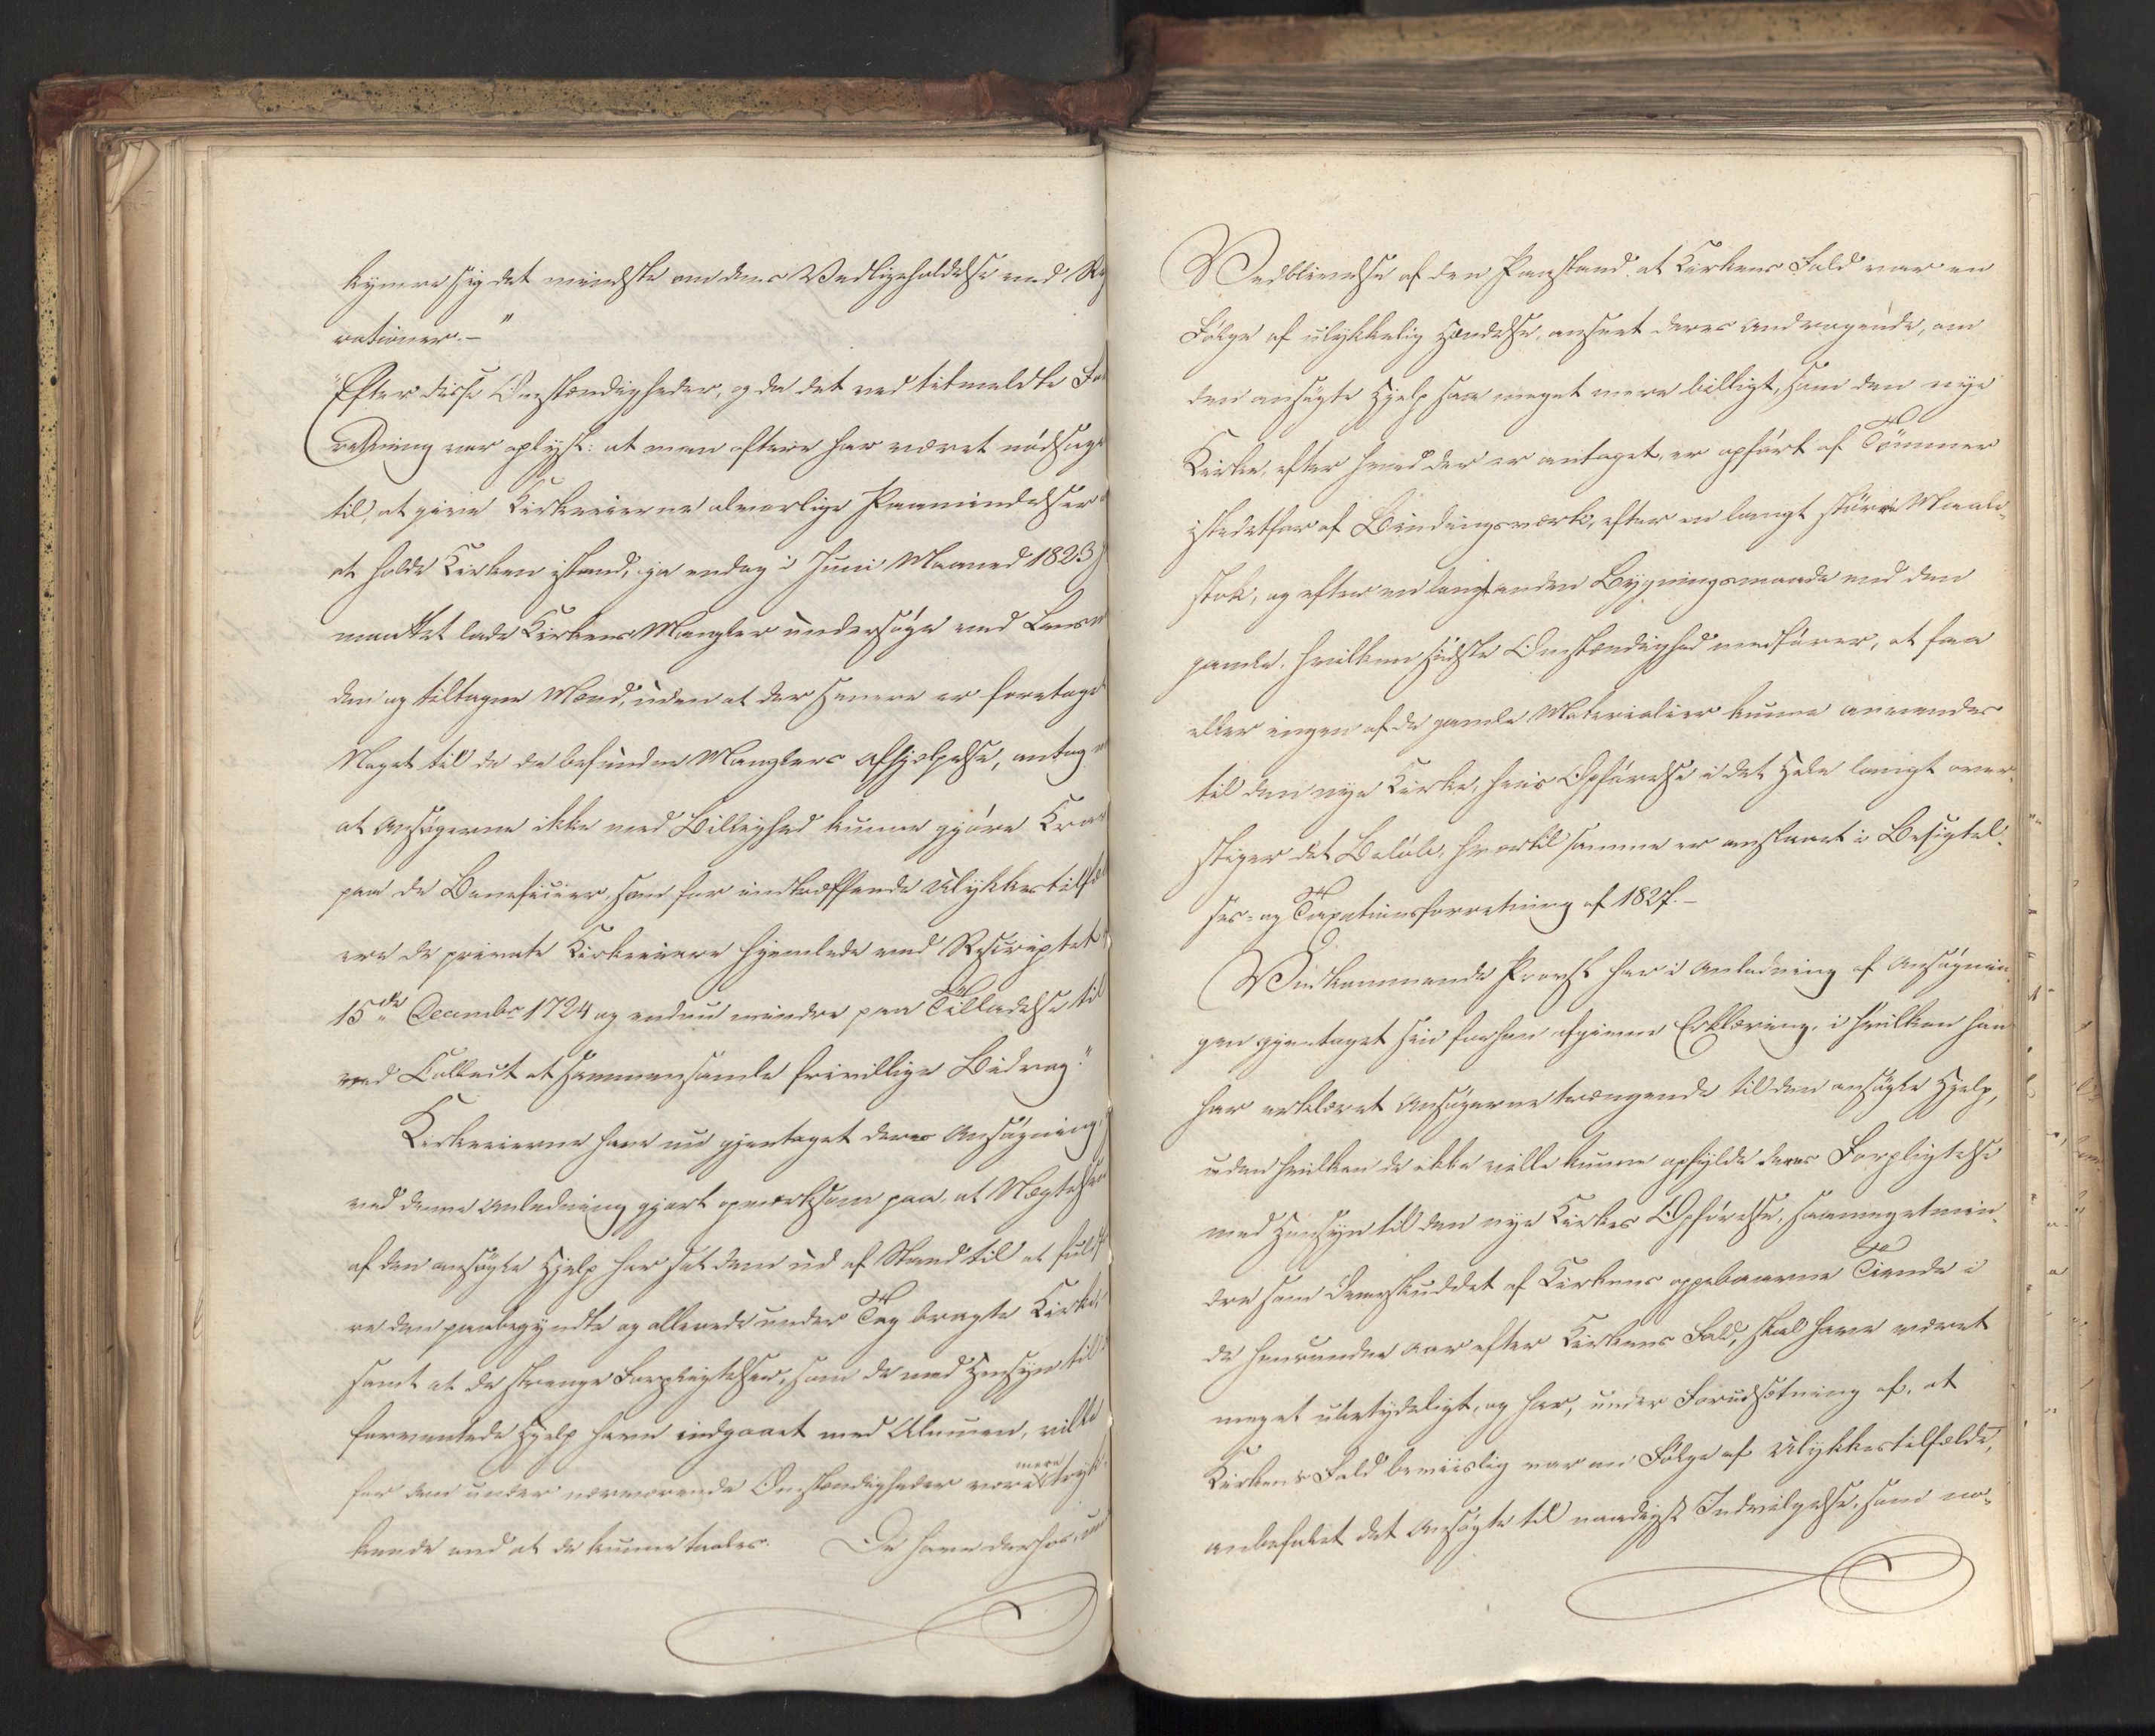 kymre sig det mindste om dens Vedligeholdelse med Re
rationer.—"
"Efter disse Omstændigheder, og da det ved bemeldte For
retning var oplyst: at man oftere har været nødsaget
til, at give Kirkeeierne alvorlige Paamindelser
at holde Kirken istand, ja endog i Juni Maaned 1823
maattet lade Kirkens Mangler undersøge ved Lens
den og tiltagne Mænd, uden at der senere er foretaget
Noget til de da befundne Manglers Afhjelpelse, antog
at Ansøgerne ikke med Billighed kunne gjøre Krav
paa de Beneficier, som for indtræffende Ulykkestilfæ
ere de private Kirkeeiere hjemlede ved Rescriptet
15de Decembr 1724 og endnu mindre paa Tilladelse til
ved Collect at sammensamle frivillige Bidrag."
Kirkeeierne have nu gjentaget deres Ansøgning,
ved denne Anledning gjort opmærksom paa, at Nægtelsen
af den ansøgte Hjelp har sat dem ud af Stand til at fuldf
re den paabegyndte og allerede under Tag bragte Kirke,
samt at de strenge Forpligtelser, som de med Hensyn til
forventede Hjelp have indgaaet med Almuen, ville
for dem under nærværende Omstændigheder være mere tryk
kende end at de kunne taales. De have derhos, und
Vedblivelse af den Paastand, at Kirkens Fald var en
Følge af ulykkelig Hændelse, anseet deres Andragende, om
den ansøgte Hjelp saa meget mere billigt, som den nye
Kirke, efter hvad der er antaget, er opført af Tømmer
istedetfor af Bindingsværk, efter en langt større Maale-
stok, og efter en langt anden Bygningsmaade end den
gamle, hvilken sidste Omstændighed medfører, at faa
eller ingen af de gamle Materialier kunne anvendes
til den nye Kirke, hvis Opførelse i det Hele langt over-
stiger det Beløb, hvortil samme er anslaaet i Besigtel-
ses- og Taxationsforretning af 1827.—
Vedkommende Provst har i Anledning af Ansøgnin-
gen gjentaget sin forhen afgivne Erklæring, i hvilken han
har erklæret Ansøgerne trængende til den ansøgte Hjelp,
uden hvilken de ikke ville kunne opfylde deres Forpligtelse
med Hensyn til den nye Kirkes Opførelse, saameget min-
dre som Overskuddet af Kirkens oppebaarne Tiende i
de henrundne Aar efter Kirkens Fald, skal have været
meget ubetydeligt, og har, under Forudsætning af, at
Kirkens Fald beviislig var en Følge af Ulykkestilfælde,
anbefalet det Ansøgte til naadigst Indvilgelse, som no-